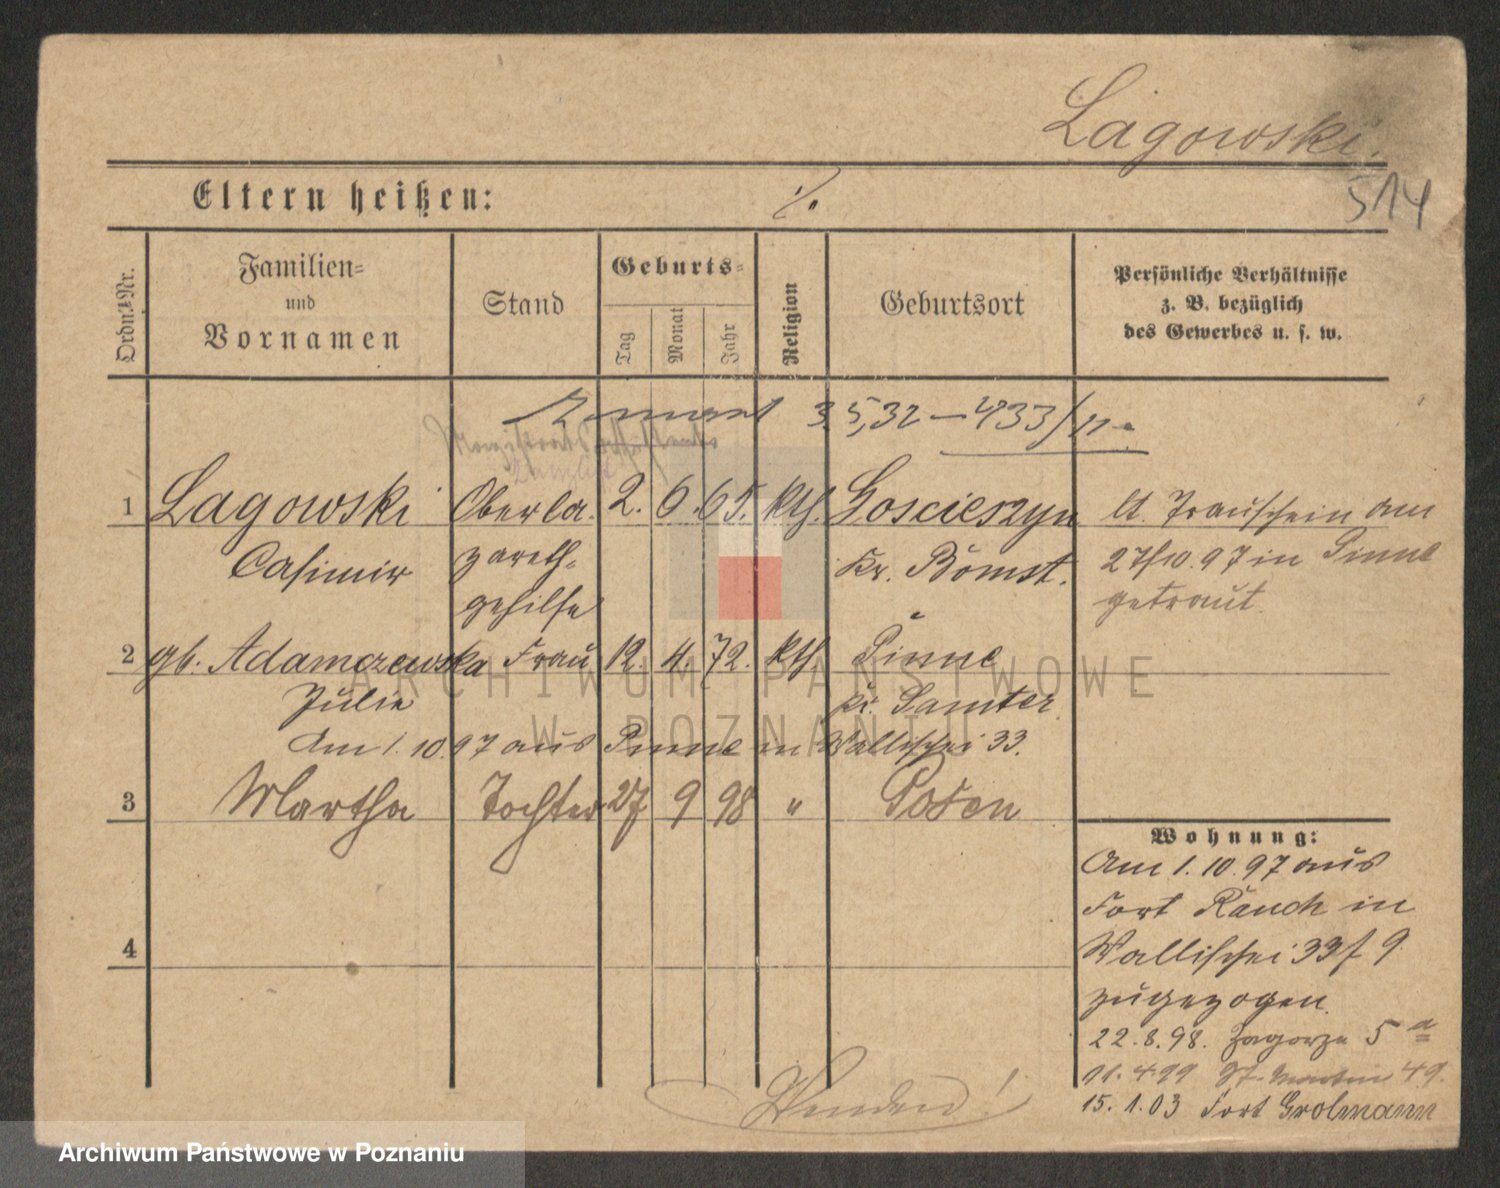 Lagowski.
514
Eltern heißen: ./.
Ordn.-Nr.
Familien-
und
Vornamen
Stand
Geburts-
Tag
Monat
Jahr
Religion
Geburtsort
Persönliche Verhältnisse
z. B. bezüglich
des Gewerbes u. s. w.
3.5,32 — 433/11.
1 Lagowski Oberla- 2. 6. 65. kth. Goscieszyn lt. Trauschein am
Casimir zareth- Kr. Bomst. 27/10.97 in Pinne
gehilfe getraut.
2 gb. Adamczewska Frau 12. 4. 72. kth. Pinne
Julie Kr. Samter.
Am 1.10.97 aus Pinne in Wallischei 33.
3 Martha Tochter 27 9 98 " Posen
4
Wohnung:
Am 1.10.97 aus
Fort Rauch in
Wallischei 33 f 9.
zugezogen.
22.8.98. Zagorze 5 a
11.4 99 St. Martin 49.
15.1.03 Fort Grolmann
Wenden!
ARCHIWUM PAŃSTWOWE
W POZNANIU
Archiwum Państwowe w Poznaniu